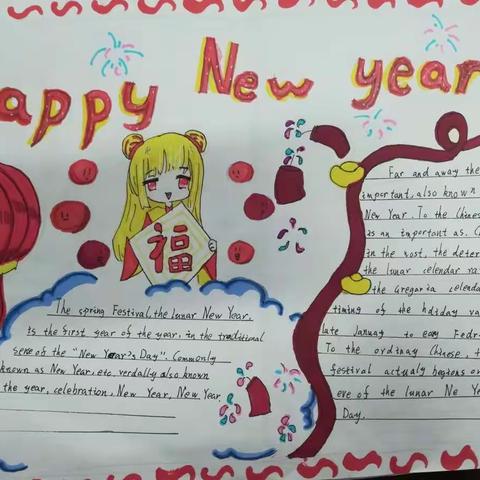 appy New year
福
The spring Festival, the lunar New Year,
is the first year of the year, in the traditional
sense of the "New Year's Day". Commonly
known as New Year, etc. verdally also known
the year, celebration, New Year, New Year
Far and away the
important, also known
New Year. To the Chinese
is an important as. C
in the vost, the deter
the lunar celendar ra
the Gregaria celenda
timing of the hdiday va
late January to eay Fedr
To the ordinay Chinese, t
festival actualy begins o
eve of the lunar Ne Ye
Day.